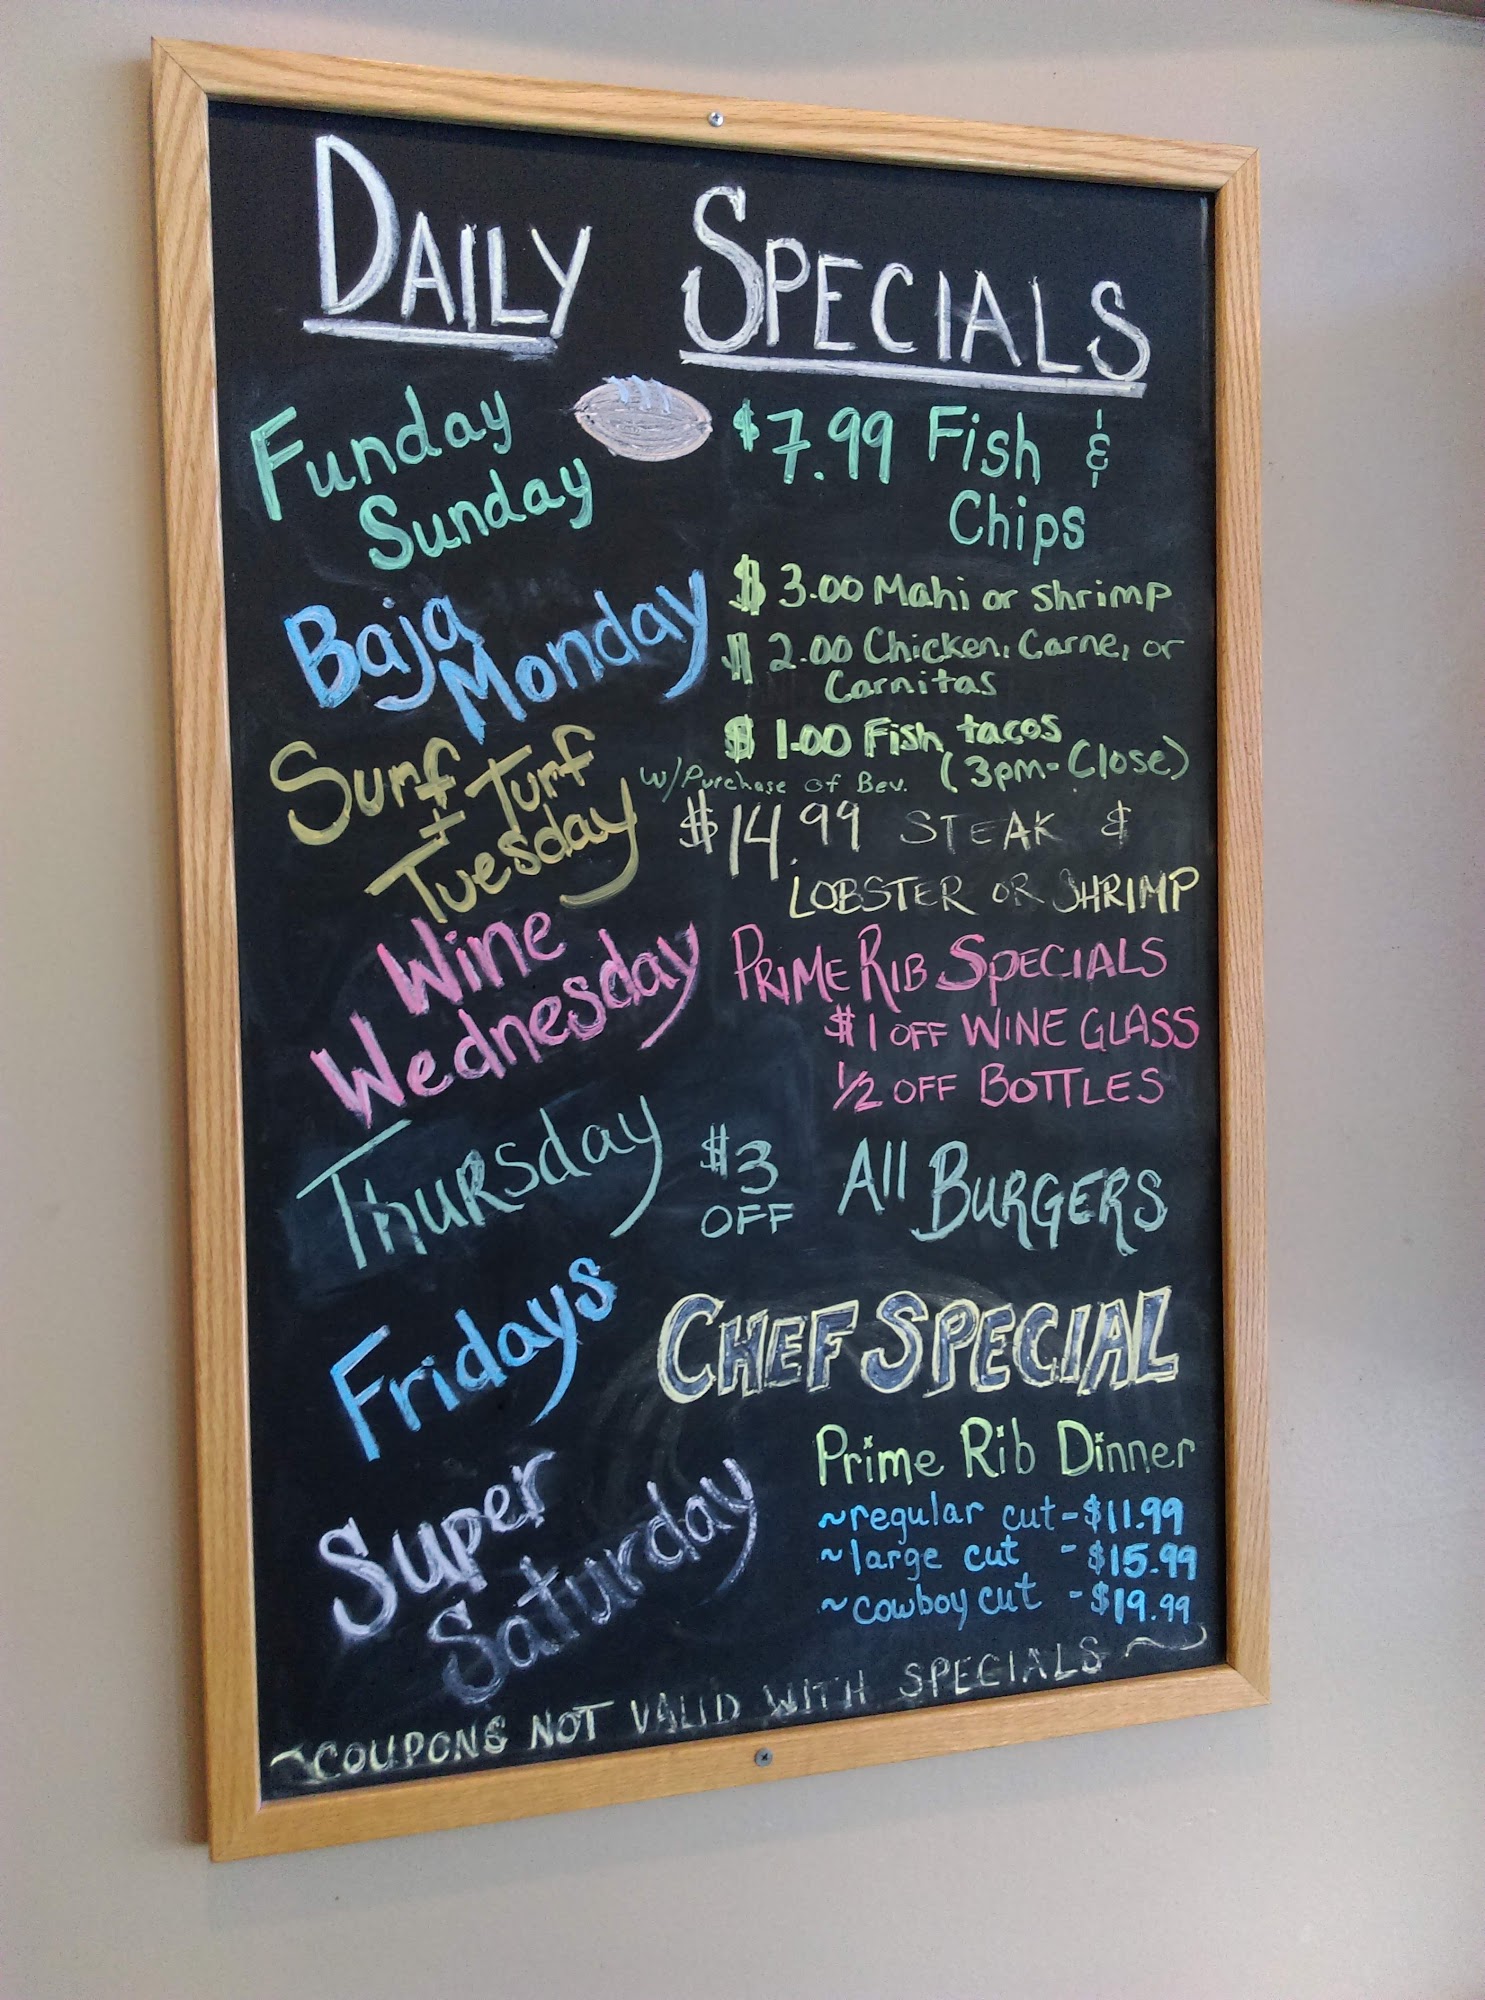 DAILY SPECIALS
Funday
Sunday
$7.99 Fish &
Chips
Baja
Monday
$3.00 Mahi or shrimp
$2.00 Chicken, Carne, or
Carnitas
$1.00 Fish tacos
w/Purchase of Bev. (3pm-Close)
Surf
+ Turf
Tuesday
$14.99 STEAK &
LOBSTER OR SHRIMP
Wine
Wednesday
PRIME RIB SPECIALS
$1 OFF WINE GLASS
1/2 OFF BOTTLES
THURSday
$3
OFF
All BURGERS
Fridays
CHEF SPECIAL
Super
Saturday
Prime Rib Dinner
~regular cut-$11.99
~large cut -$15.99
~cowboy cut -$19.99
~COUPONS NOT VALID WITH SPECIALS~